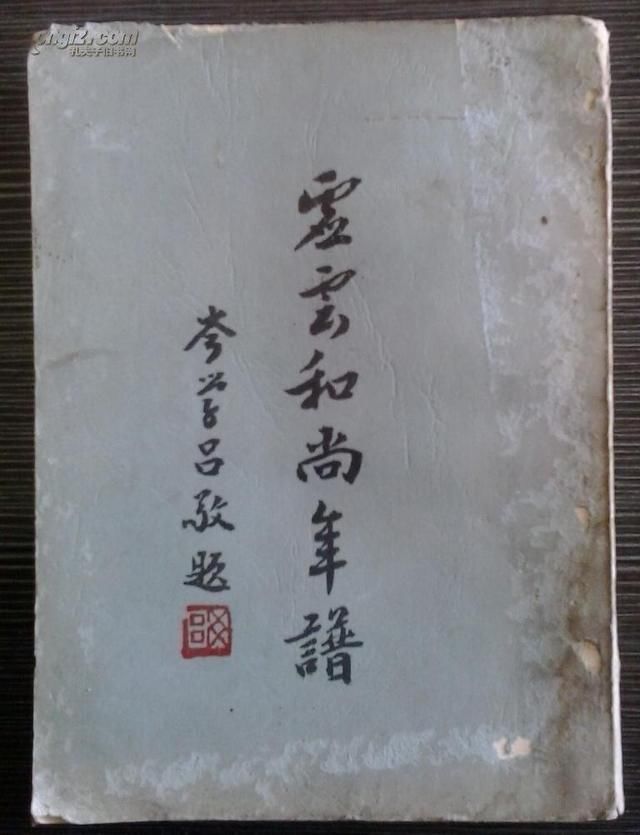 kongfz.com
孔夫子旧书网
虛雲和尚年譜
岑学吕敬题